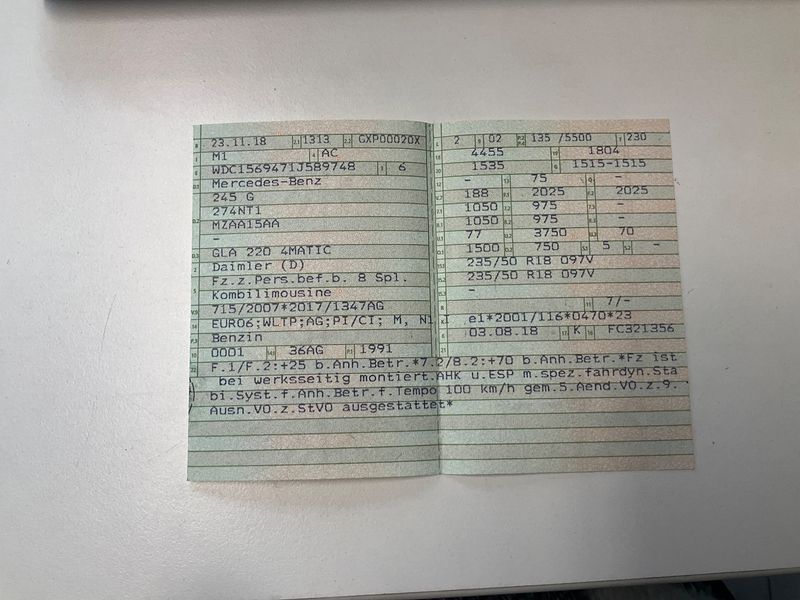 23.11.18 1313 GXP00020X
M1 AC
WDC1569471J589748 6
Mercedes-Benz
245 G
274NT1
MZAA15AA
-
GLA 220 4MATIC
Daimler (D)
Fz.z.Pers.bef.b. 8 Spl.
Kombilimousine
715/2007*2017/1347AG
EURO6;WLTP;AG;PI/CI; M, N1 I
Benzin
0001 36AG 1991
2 02 135 /5500 230
4455 1804
1535 1515-1515
- 75 -
188 2025 2025
1050 975 -
1050 975 -
77 3750 70
1500 750 5 -
235/50 R18 097V
235/50 R18 097V
-
7/-
e1*2001/116*0470*23
03.08.18 K FC321356
F.1/F.2:+25 b.Anh.Betr.*7.2/8.2:+70 b.Anh.Betr.*Fz ist
bei werksseitig montiert.AHK u.ESP m.spez.fahrdyn.Sta
bi.Syst.f.Anh.Betr.f.Tempo 100 km/h gem.5.Aend.VO.z.9.
Ausn.VO.z.StVO ausgestattet*